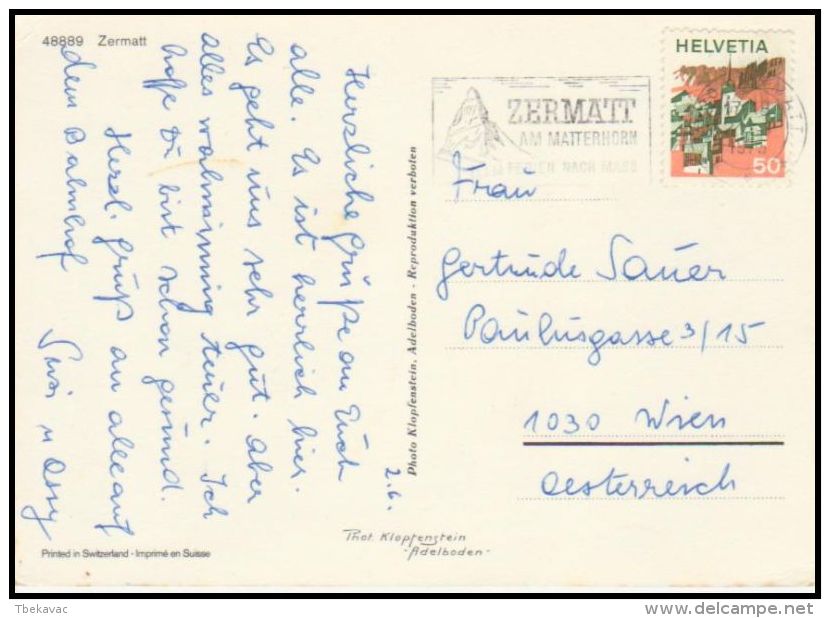 48889 Zermatt
Herzliche Grüße an Euch
alle. Es ist herrlich hier.
Es geht uns sehr gut. Aber
alles wahnsinnig teuer. Ich
hoffe Du bist schon gesund.
Herzl. Grüß an alle auf
dem Bahnhof
Susi u Ossy
2.6.
Printed in Switzerland - Imprimé en Suisse
Photo Klopfenstein, Adelboden - Reproduktion verboten
Phot. Klopfenstein
-Adelboden-
ZERMATT
AM MATTERHORN
FERIEN NACH MASS
HELVETIA
50
Frau
Gertrude Sauer
Paulusgasse 3/15
1030 Wien
Oesterreich
Tbekavac
delcampe.net